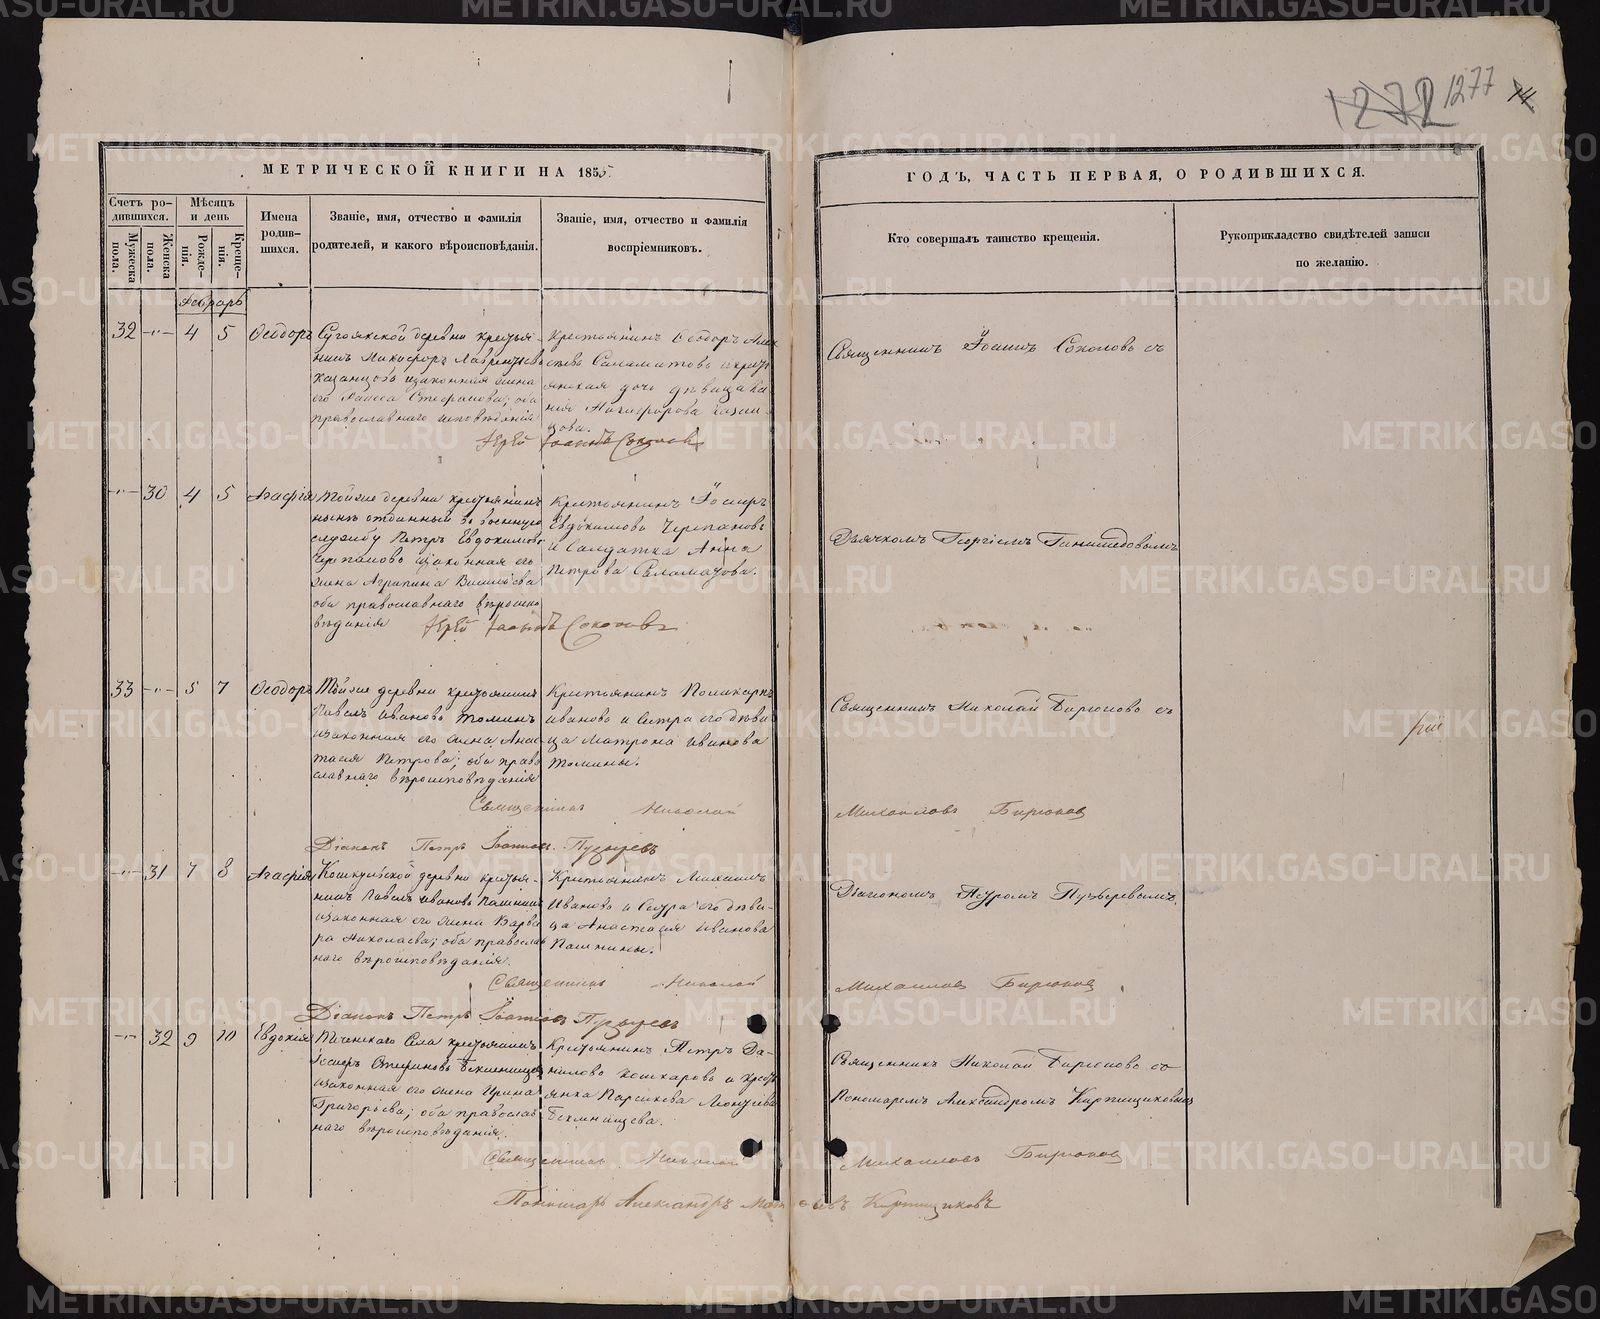 1277
МЕТРИЧЕСКОЙ КНИГИ НА 1855
ГОДЪ, ЧАСТЬ ПЕРВАЯ, О РОДИВШИХСЯ.
Счетъ ро-
дившихся.
Мужеска
пола.
Женска
пола.
Мѣсяцъ
и день
Рожде-
нія.
Креще-
нія.
Имена
родив-
шихся.
Званіе, имя, отчество и фамилія
родителей, и какого вѣроисповѣданія.
Званіе, имя, отчество и фамилія
воспріемниковъ.
Кто совершалъ таинство крещенія.
Рукоприкладство свидѣтелей записи
по желанію.
Февраль
32 -"- 4 5 Ѳеодоръ
Сугоякской деревни крестья-
нинъ Никифоръ Лаврентьевъ
Казанцовъ и законная жена
его Стефанова; оба
православнаго исповѣданія
Крестьянинъ Ѳеодоръ
Саламатовъ и кресть
янская дочь дѣвица
Никифорова Казан-
цова.
Священникъ Іоаннъ Соколовъ съ
Іерей Іоаннъ Соколовъ
-"- 30 4 5 Агафія
Тойже деревни крестьянинъ
нынѣ отданный въ военную
службу Петръ Евдокимовъ
Черпановъ и законная его
жена Агрипина Васильева
оба православнаго вѣроиспо
вѣданія
Крестьянинъ Іосифъ
Евдокимовъ Черпановъ
и Салдатка Анна
Петрова Саламатова.
Дьячкомъ Георгіемъ
Іерей Іоаннъ Соколовъ
33 -"- 5 7 Ѳеодоръ
Тойже деревни крестьянинъ
Павелъ Ивановъ Томинъ
и законная его жена Анас-
тасія Петрова; оба право
славнаго вѣроисповѣданія
Крестьянинъ Поликарпъ
Ивановъ и Сестра его дѣви
ца Матрона Иванова
Томины.
Священникъ Николай Бирюковъ съ
Священникъ Николай Михаиловъ Бирюковъ
Діаконъ Петръ Іоанновъ Пузыревъ
-"- 31 7 8 Агафія
Кошкульской деревни крестья-
нинъ Павелъ Ивановъ Пашнинъ
и законная его жена Варва
ра Николаева; оба православ
наго вѣроисповѣданія.
Крестьянинъ Михаилъ
Ивановъ и Сестра его дѣви-
ца Анастасія Иванова
Пашнины.
Діакономъ Петромъ Пузыревымъ
Священникъ Николай Михаиловъ Бирюковъ
Діаконъ Петръ Іоанновъ Пузыревъ
-"- 32 9 10 Евдокія
Теченскаго Села крестьянинъ
Іосифъ Стефановъ
и законная его жена Ирина
Григорьева; оба православ
наго вѣроисповѣданія.
Крестьянинъ Петръ Да-
ниловъ Кошкаровъ и кресть
янка
Священникъ Николай Бирюковъ съ
Пономаремъ Александромъ Кирпищиковымъ
Священникъ Николай Михаиловъ Бирюковъ
Пономарь Александръ Кирпищиковъ
METRIKI.GASO-URAL.RU